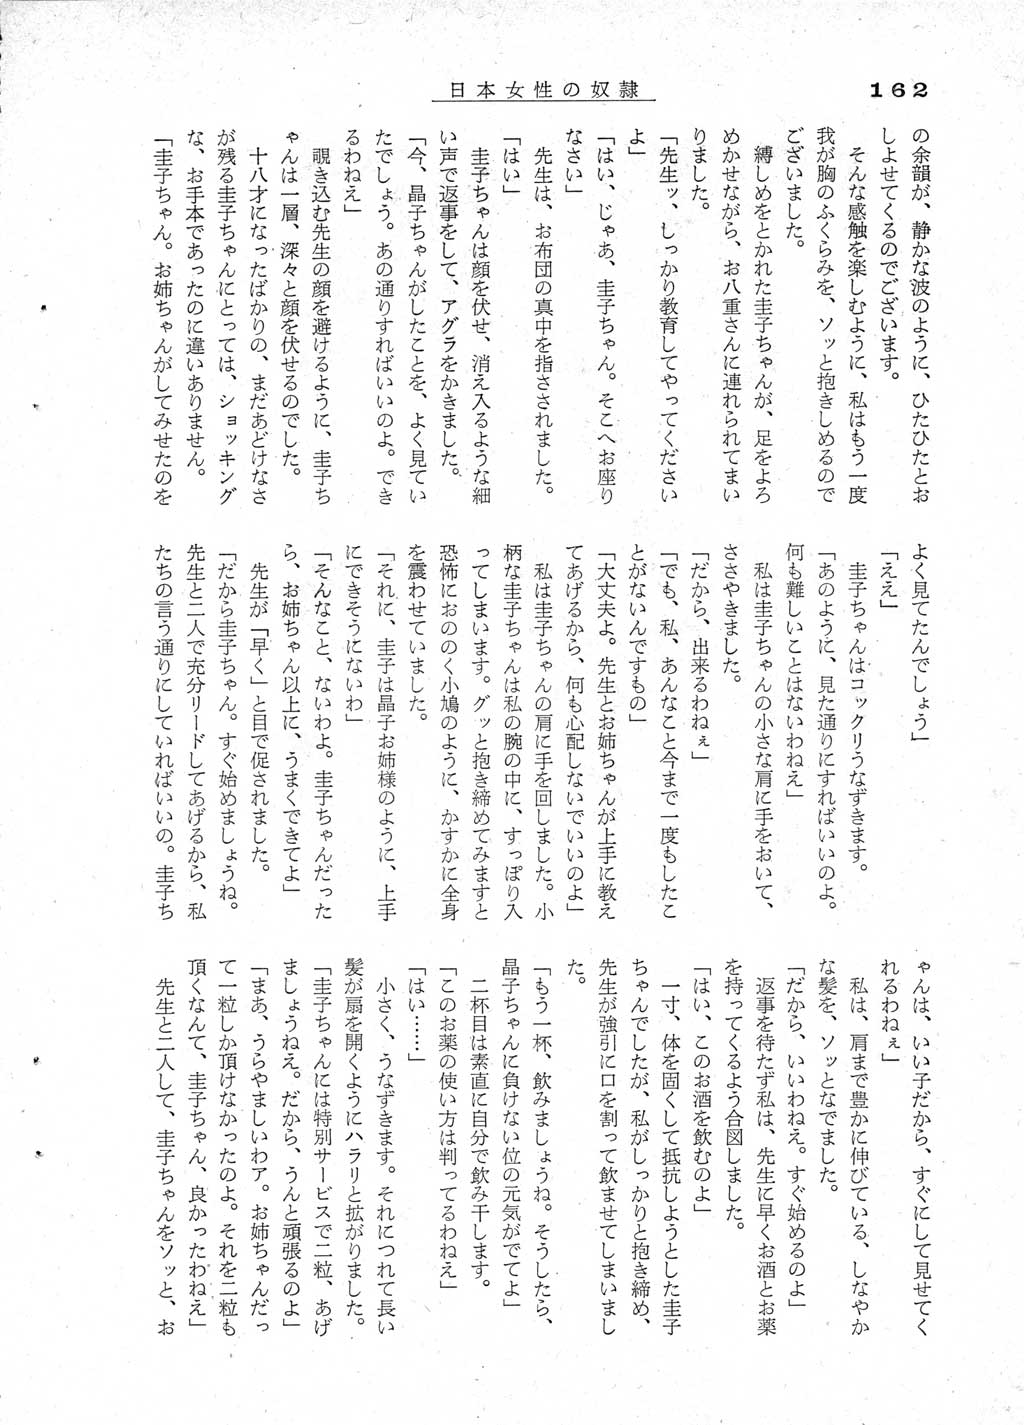 162
日本女性の奴隷
の余韻が、静かな波のように、ひたひたとお
しよせてくるのでございます。
そんな感触を楽しむように、私はもう一度
我が胸のふくらみを、ソッと抱きしめるので
ございました。
縛しめをとかれた圭子ちゃんが、足をよろ
めかせながら、お八重さんに連れられてまい
りました。
「先生ッ、しっかり教育してやってください
よ」
「はい、じゃあ、圭子ちゃん。そこへお座り
なさい」
先生は、お布団の真中を指さされました。
「はい」
圭子ちゃんは顔を伏せ、消え入るような細
い声で返事をして、アグラをかきました。
「今、晶子ちゃんがしたことを、よく見てい
たでしょう。あの通りすればいいのよ。でき
るわねえ」
覗き込む先生の顔を避けるように、圭子ち
ゃんは一層、深々と顔を伏せるのでした。
十八才になったばかりの、まだあどけなさ
が残る圭子ちゃんにとっては、ショッキング
な、お手本であったのに違いありません。
「圭子ちゃん。お姉ちゃんがしてみせたのを
よく見てたんでしょう」
「ええ」
圭子ちゃんはコックリうなずきます。
「あのように、見た通りにすればいいのよ。
何も難しいことはないわねえ」
私は圭子ちゃんの小さな肩に手をおいて、
ささやきました。
「だから、出来るわねぇ」
「でも、私、あんなこと今まで一度もしたこ
とがないんですもの」
「大丈夫よ。先生とお姉ちゃんが上手に教え
てあげるから、何も心配しないでいいのよ」
私は圭子ちゃんの肩に手を回しました。小
柄な圭子ちゃんは私の腕の中に、すっぽり入
ってしまいます。グッと抱き締めてみますと
恐怖におののく小鳩のように、かすかに全身
を震わせていました。
「それに、圭子は晶子お姉様のように、上手
にできそうにないわ」
「そんなこと、ないわよ。圭子ちゃんだった
ら、お姉ちゃん以上に、うまくできてよ」
先生が「早く」と目で促されました。
「だから圭子ちゃん。すぐ始めましょうね。
先生と二人で充分リードしてあげるから、私
たちの言う通りにしていればいいの。圭子ち
ゃんは、いい子だから、すぐにして見せてく
れるわねぇ」
私は、肩まで豊かに伸びている、しなやか
な髪を、ソッとなでました。
「だから、いいわねえ。すぐ始めるのよ」
返事を待たず私は、先生に早くお酒とお薬
を持ってくるよう合図しました。
「はい、このお酒を飲むのよ」
一寸、体を固くして抵抗しようとした圭子
ちゃんでしたが、私がしっかりと抱き締め、
先生が強引に口を割って飲ませてしまいまし
た。
「もう一杯、飲みましょうね。そうしたら、
晶子ちゃんに負けない位の元気がでてよ」
二杯目は素直に自分で飲み干します。
「このお薬の使い方は判ってるわねえ」
「はい……」
小さく、うなずきます。それにつれて長い
髪が扇を開くようにハラリと拡がりました。
「圭子ちゃんには特別サービスで二粒、あげ
ましょうねえ。だから、うんと頑張るのよ」
「まあ、うらやましいわア。お姉ちゃんだっ
て一粒しか頂けなかったのよ。それを二粒も
頂くなんて、圭子ちゃん、良かったわねえ」
先生と二人して、圭子ちゃんをソッと、お